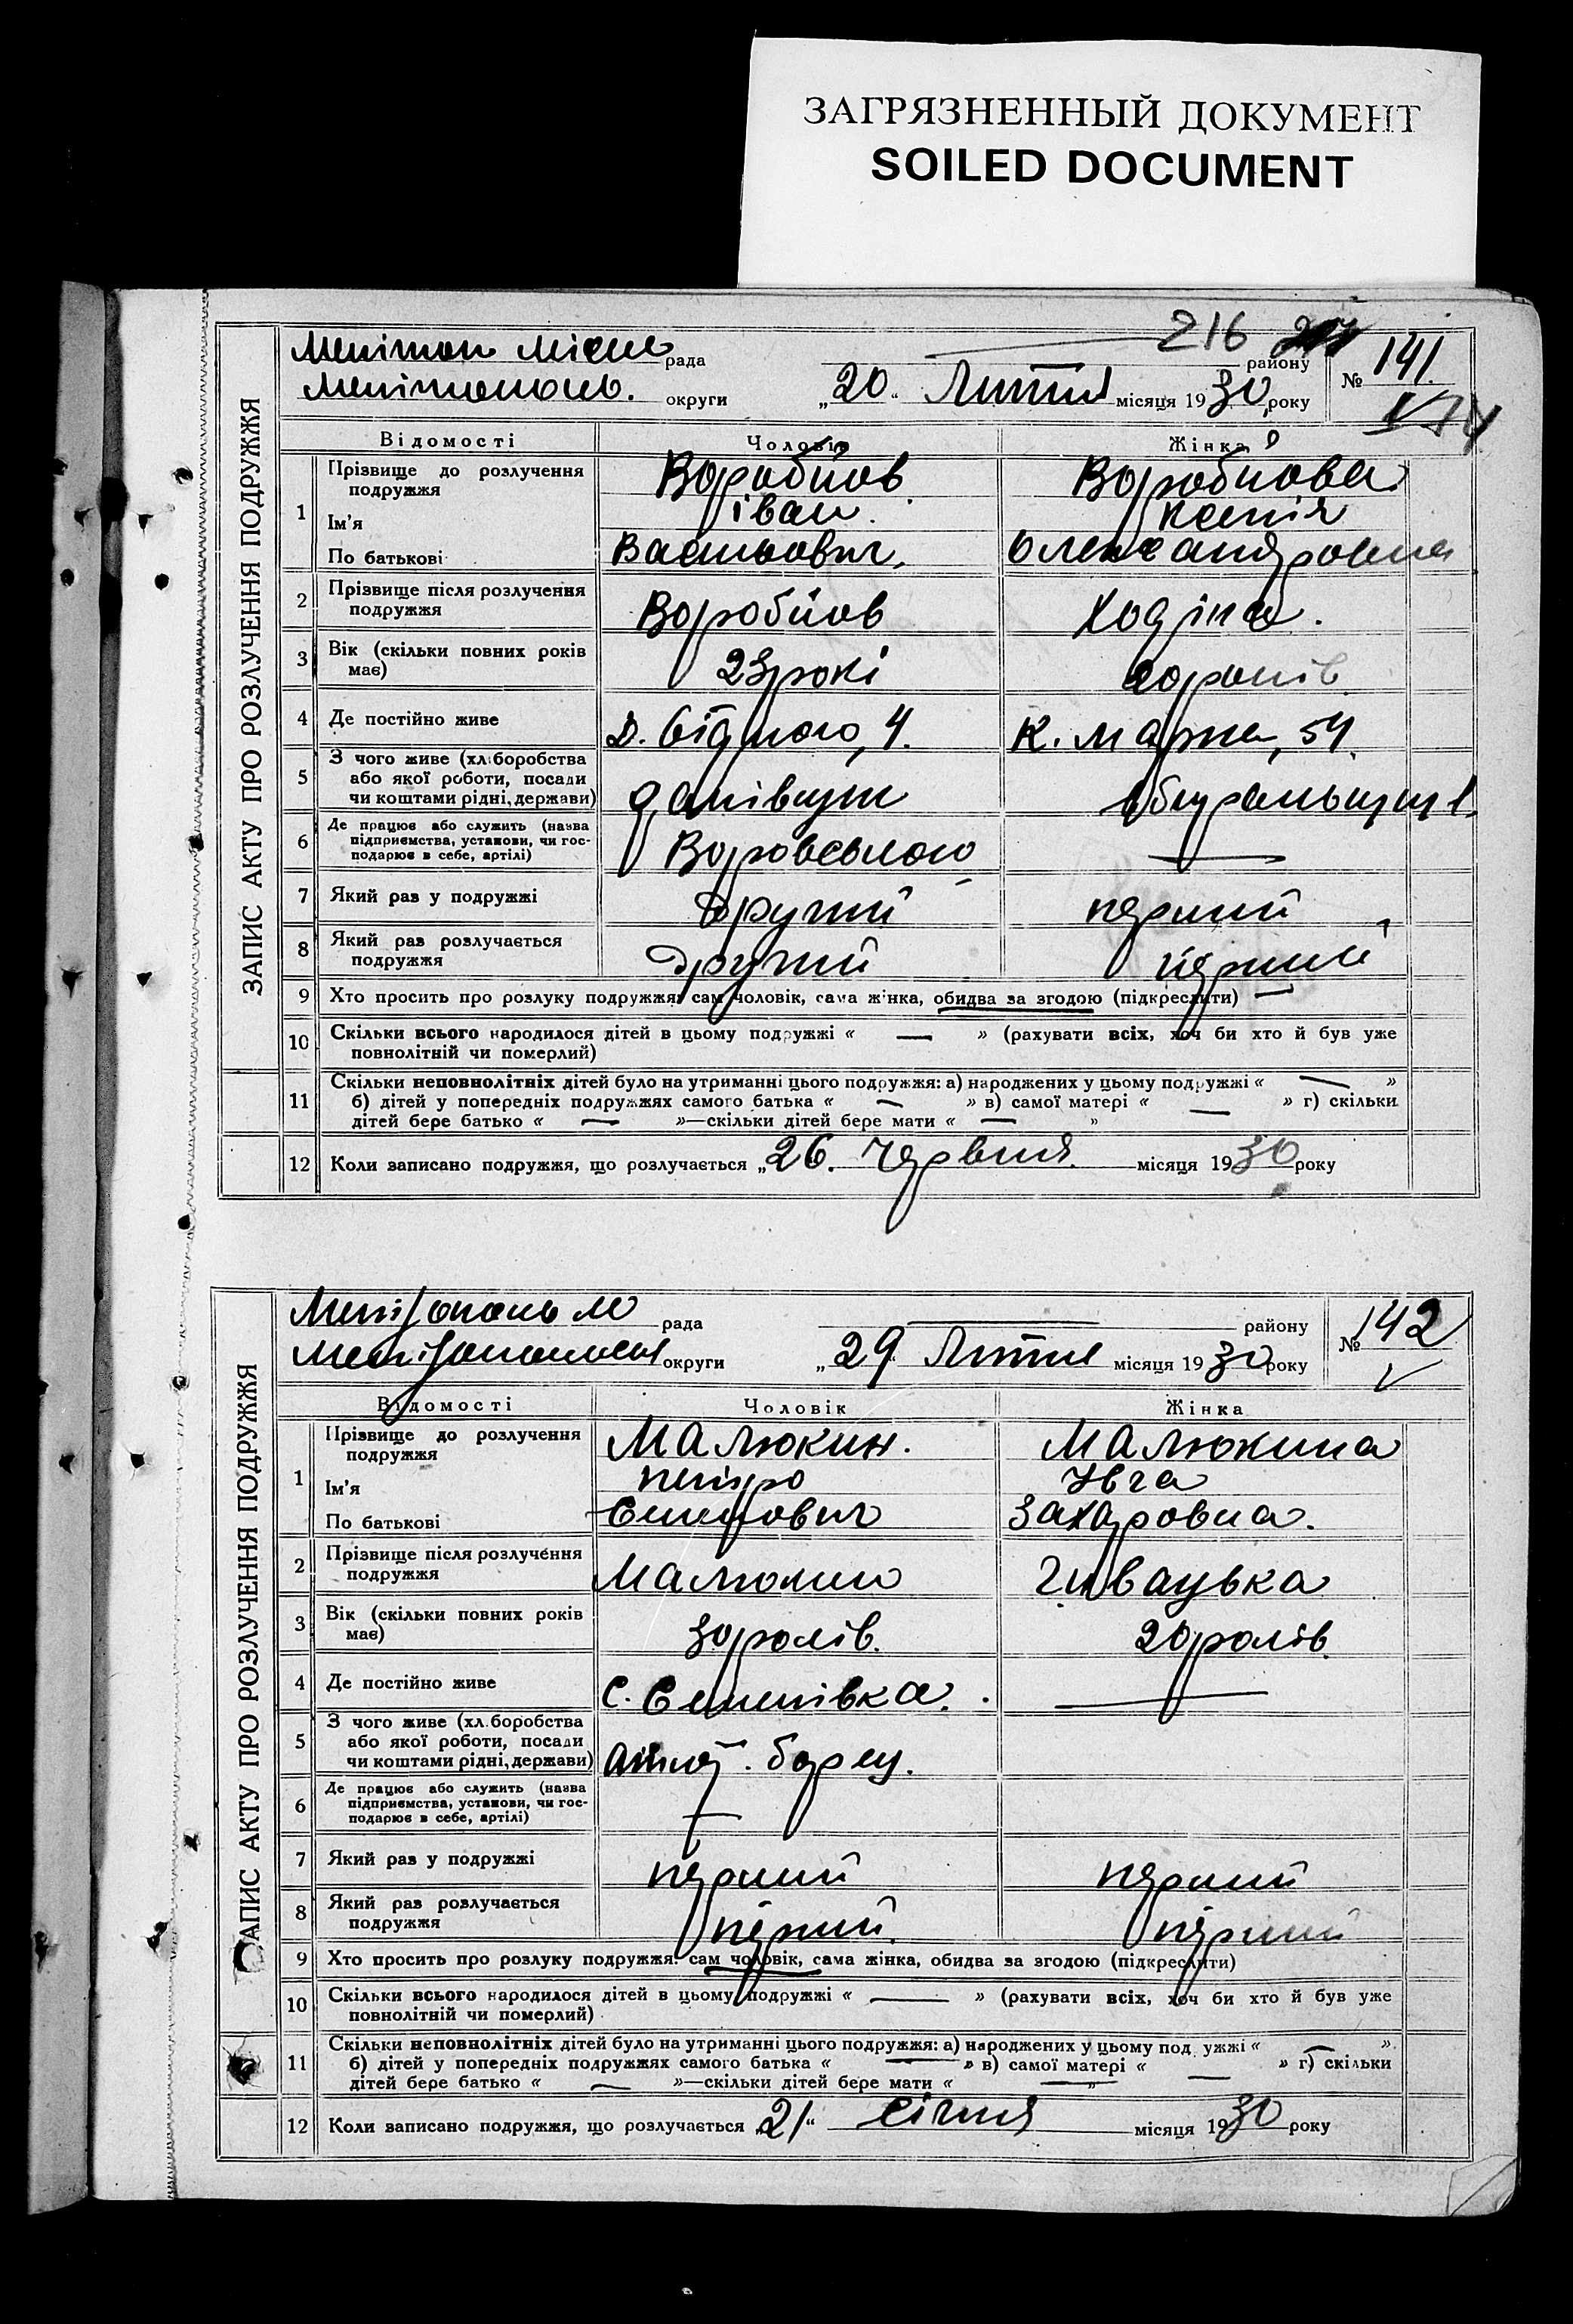 ЗАГРЯЗНЕННЫЙ ДОКУМЕНТ
SOILED DOCUMENT
216
ЗАПИС АКТУ ПРО РОЗЛУЧЕННЯ ПОДРУЖЖЯ
рада району № 141
округи „20" Лютня місяця 1930 року
Відомості Чоловік Жінка
1 Прізвище до розлучення подружжя Воробйов Воробйова
Ім'я іван Ксенія
По батькові Васильович Олександровна
2 Прізвище після розлучення подружжя Воробйов Ходіна.
3 Вік (скільки повних років має) 23 рокі 20 років
4 Де постійно живе Д. Бідного, 4. К. Маркса, 54.
5 З чого живе (хліборобства
або якої роботи, посади
чи коштами рідні, держави)
6 Де працює або служить (назва
підприємства, установи, чи гос-
подарює в себе, артілі) Воровського —
7 Який раз у подружжі Другий перший
8 Який раз розлучається подружжя Другий перший
9 Хто просить про розлуку подружжя: сам чоловік, сама жінка, обидва за згодою (підкреслити) —
10 Скільки всього народилося дітей в цьому подружжі « — » (рахувати всіх, хоч би хто й був уже
повнолітній чи померлий)
11 Скільки неповнолітніх дітей було на утриманні цього подружжя: а) народжених у цьому подружжі « — »
б) дітей у попередніх подружжях самого батька « — » в) самої матері « — » г) скільки
дітей бере батько « — »—скільки дітей бере мати « — »
12 Коли записано подружжя, що розлучається „26. Червня місяця 1930 року
ЗАПИС АКТУ ПРО РОЗЛУЧЕННЯ ПОДРУЖЖЯ
Мелітополь М рада району № 142
округи „29" Лютня місяця 1930 року
Відомості Чоловік Жінка
1 Прізвище до розлучення подружжя Малюкин. Малюкина
Ім'я петро Івга
По батькові Захаровна.
2 Прізвище після розлучення подружжя Малюкин
3 Вік (скільки повних років має) 30 років. 20 років.
4 Де постійно живе с. Семенівка. —
5 З чого живе (хліборобства
або якої роботи, посади
чи коштами рідні, держави)
6 Де працює або служить (назва
підприємства, установи, чи гос-
подарює в себе, артілі) —
7 Який раз у подружжі перший перший
8 Який раз розлучається подружжя перший перший
9 Хто просить про розлуку подружжя: сам чоловік, сама жінка, обидва за згодою (підкреслити)
10 Скільки всього народилося дітей в цьому подружжі « — » (рахувати всіх, хоч би хто й був уже
повнолітній чи померлий)
11 Скільки неповнолітніх дітей було на утриманні цього подружжя: а) народжених у цьому подружжі « — »
б) дітей у попередніх подружжях самого батька « — » в) самої матері « — » г) скільки
дітей бере батько « — »—скільки дітей бере мати « — »
12 Коли записано подружжя, що розлучається „21" січня місяця 1930 року